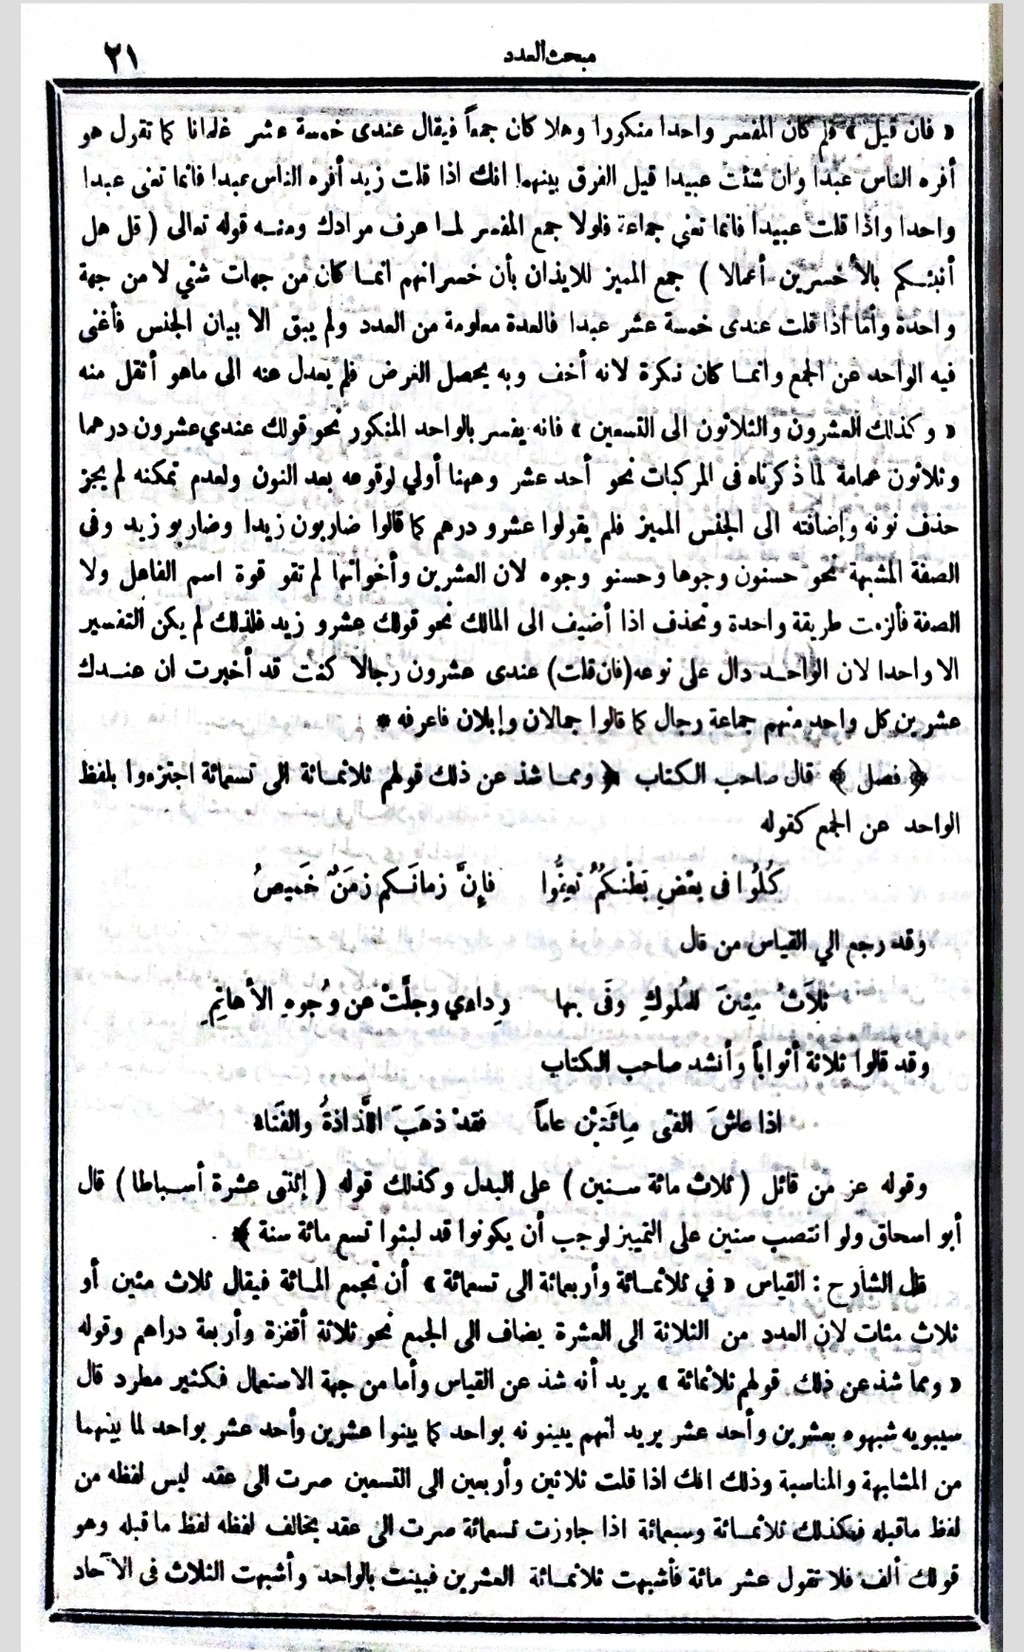 مبحث العدد
٢١
« فان قيل » فلم كان المفسر واحدا منكورا وهلا كان جمعاً فيقال عندى خمسة عشر غلمانا كما تقول هو
أفره الناس عبدا وان شئت عبيدا قيل الفرق بينهما انك اذا قلت زيد أفره الناس عبدا فانما تعنى عبدا
واحدا واذا قلت عبيدا فانما تعنى جماعة فلولا جمع المفسر لمـا عرف مرادك ومنـه قوله تعالى ( قل هل
أنبئـكم بالأخسرين أعمالا ) جمع المميز للايذان بأن خسرانهم انمـا كان من جهات شتي لا من جهة
واحدة وأما اذا قلت عندى خمسة عشر عبدا فالعدة معلومة من العدد ولم يبق الا بيان الجنس فأغنى
فيه الواحد عن الجمع وانمـا كان نكرة لانه أخف وبه يحصل الغرض فلم يعدل عنه الى ماهو أثقل منه
« وكذلك العشرون والثلاثون الى التسعين » فانه يفسر بالواحد المنكور نحو قولك عندي عشرون درهما
وثلاثون عمامة لما ذكرناه فى المركبات نحو أحد عشر وههنا أولي لوقوعه بعد النون ولعدم تمكنه لم يجز
حذف نونه وإضافته الى الجنس المميز فلم يقولوا عشرو درهم كما قالوا ضاربون زيدا وضاربو زيد وفى
الصفة المشبهة نحو حسنون وجوها وحسنو وجوه لان العشرين وأخواتها لم تقو قوة اسم الفاعل ولا
الصفة فألزمت طريقة واحدة وتحذف اذا أضيف الى المالك نحو قولك عشرو زيد فلذلك لم يكن التفسير
الا واحدا لان الواحـد دال على نوعه (فان قلت) عندى عشرون رجالا كنت قد أخبرت ان عنـدك
عشرين كل واحد منهم جماعة رجال كما قالوا جمالان وإبلان فاعرفه *
﴿ فصل ﴾ قال صاحب الـكتاب ﴿ وممـا شذ عن ذلك قولهم ثلاثمـائة الى تسعمائة اجتزءوا بلفظ
الواحد عن الجمع كقوله
كُلُوا فى بعْضِ بَطْنـكُمُ تعِفُّوا فإِنَّ زمانَـكم زمَنٌ خَميصُ
وقد رجع الي القياس من قال
ثلاَثُ مِئينَ للمُلوكِ وفَى بها رِداءي وجلَّتْ عن وُجوهِ الأهاتِمِ
وقد قالوا ثلاثة أثواباً وأنشد صاحب الـكتاب
اذا عاشَ الفتى مِائَتيْن عاماً فقدْ ذهَبَ اللَّذاذةُ والفَتاء
وقوله عز من قائل ( ثلاث مائة سـنين ) على البدل وكذلك قوله ( إثنتى عشرة أسـباطا ) قال
أبو اسحاق ولو انتصب سنين على التمييز لوجب أن يكونوا قد لبثوا تسع مائة سنة ﴾ .
قال الشارح : القياس « في ثلاثمـائة وأربعمائة الى تسعمائة » أن تجمع المـائة فيقال ثلاث مئين أو
ثلاث مئات لان العدد من الثلاثة الى العشرة يضاف الى الجمع نحو ثلاثة أقفزة وأربعة دراهم وقوله
« ومما شذ عن ذلك قولهم ثلاثمائة » يريد أنه شذ عن القياس وأما من جهة الاستعمال فـكثير مطرد قال
سيبويه شبهوه بعشرين وأحد عشر يريد انهم يبينونه بواحد كما بينوا عشرين وأحد عشر بواحد لما بينهما
من المشابهة والمناسبة وذلك انك اذا قلت ثلاثين وأربعين الى التسعين صرت الى عقد ليس لفظه من
لفظ ماقبله فـكذلك ثلاثمـائة وسبعمائة اذا جاوزت تسعمائة صرت الى عقد يخالف لفظه لفظ ما قبله وهو
قولك ألف فلا تقول عشر مائة فأشبهت ثلاثمـائة العشرين فبينت بالواحد وأشبهت الثلاث فى الآحاد